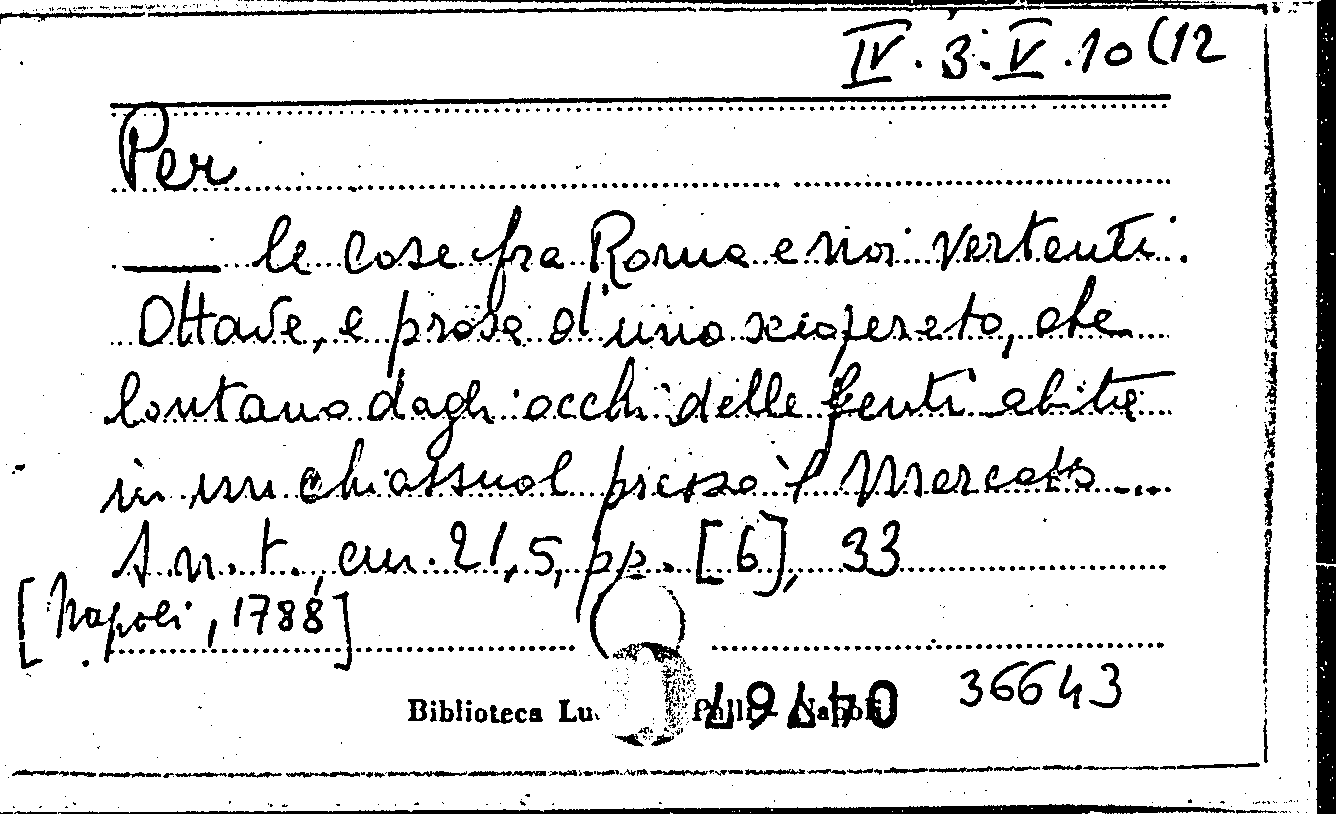 IV. 3. V. 10(12
Per
—— le cose fra Roma e noi vertenti.
Ottave, e prose d'uno scioperato, che
lontano dagli occhi delle genti abita
in un chiassuol presso 'l Mercato ...
S. n. t., cm. 21,5, pp. [6], 33
[Napoli, 1788]
Biblioteca Lu Napoli
36643